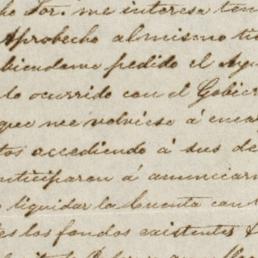 ho Sor. me interesa ten
Aprobecho al mismo ti
biendame pedido el Ayu
lo ocurrido con el Gobier
que me volviese á enca
tos accediendo á sus de
anticiparon á anunciarm
liquidar la Cuenta con
los fondos existentes